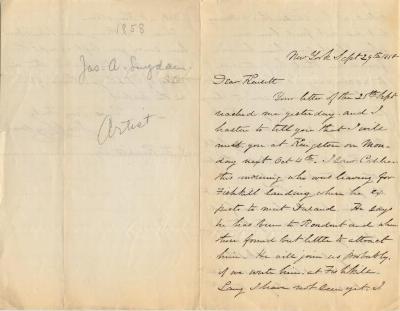 1858
Jas. A. Suydam
Artist
New York Sept 29th 1858
Dear Kensett
Your letter of the 28th Sept
reached me yesterday and I
hasten to tell you that I will
meet you at Kingston on Mon-
day next Oct 4th. I saw Casilear
this morning who was leaving for
Fishkill Landing where he ex-
pects to meet Durand. He says
he has been to Rondout and when
there found but little to attract
him. He will join us probably,
if we write him at Fishkill.
Lang I have not seen yet. I